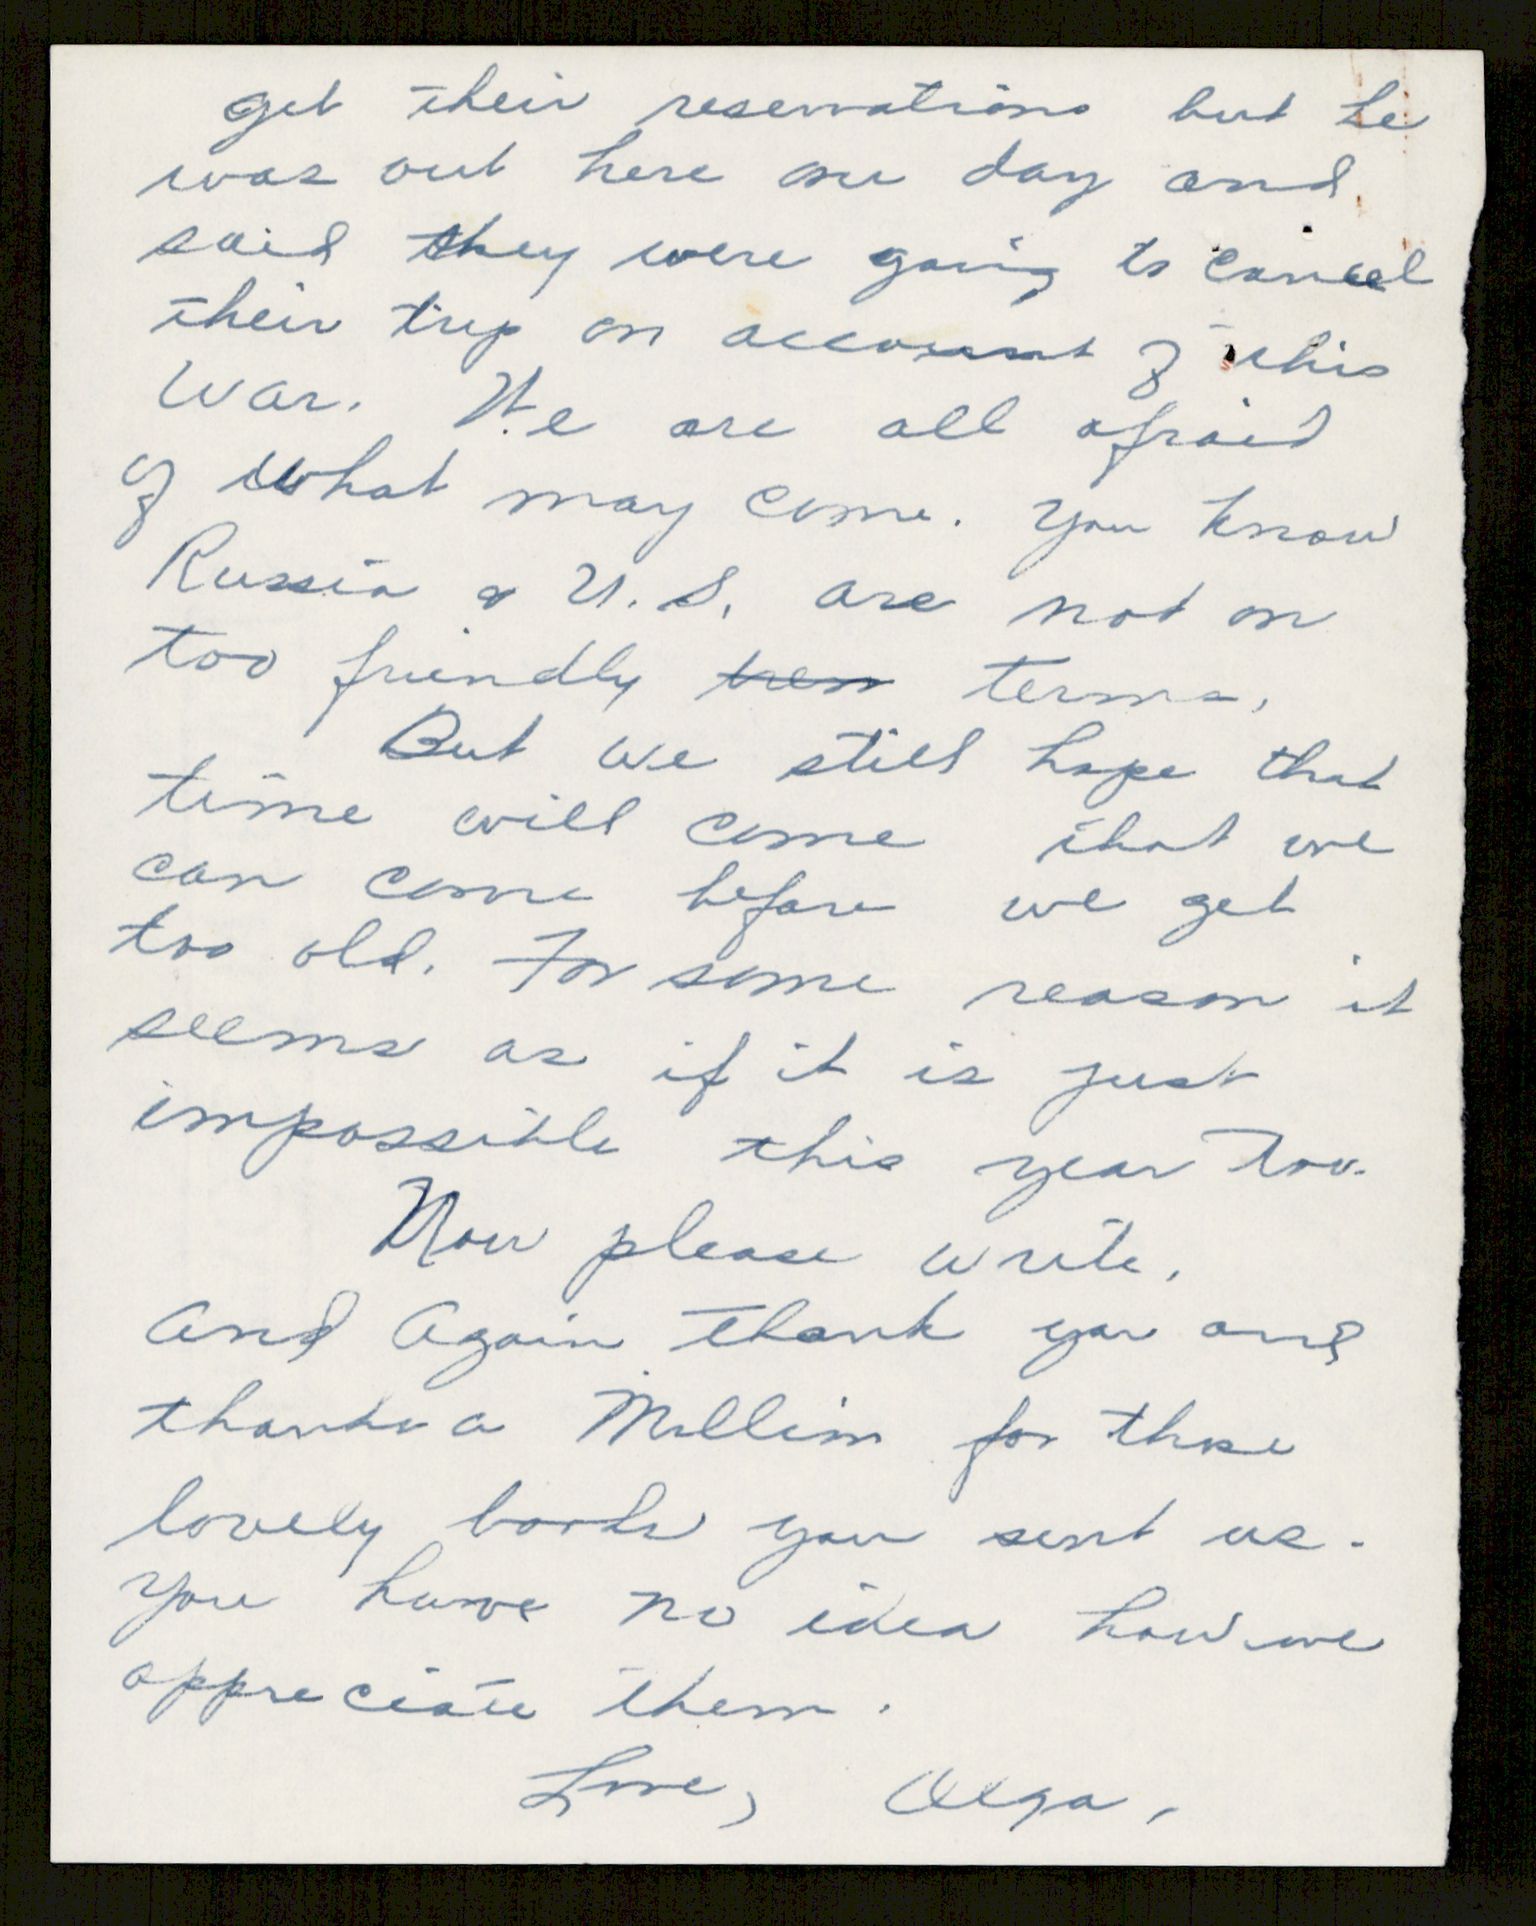 get their reservations but he
was out here one day and
said they were going to cancel
their trip on account of this
War. We are all afraid
of what may come. You know
Russia & U.S. are not on
too friendly trem terms.
But we still hope that
time will come that we
can come before we get
too old. For some reason it
seems as if it is just
impossible this year too.
Now please write.
And Again thank you and
thanks a Million for those
lovely books you sent us.
You have no idea how we
appreciate them.
Love, Olga.